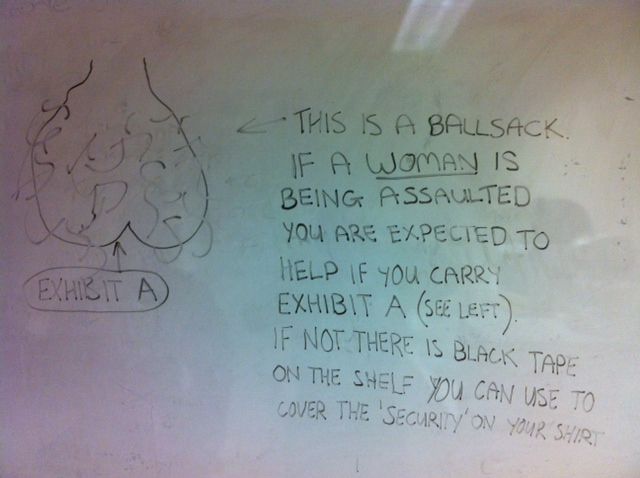 THIS IS A BALLSACK.
IF A WOMAN IS
BEING ASSAULTED
YOU ARE EXPECTED TO
HELP IF YOU CARRY
EXHIBIT A (SEE LEFT).
IF NOT THERE IS BLACK TAPE
ON THE SHELF YOU CAN USE TO
COVER THE 'SECURITY' ON YOUR SHIRT
EXHIBIT A